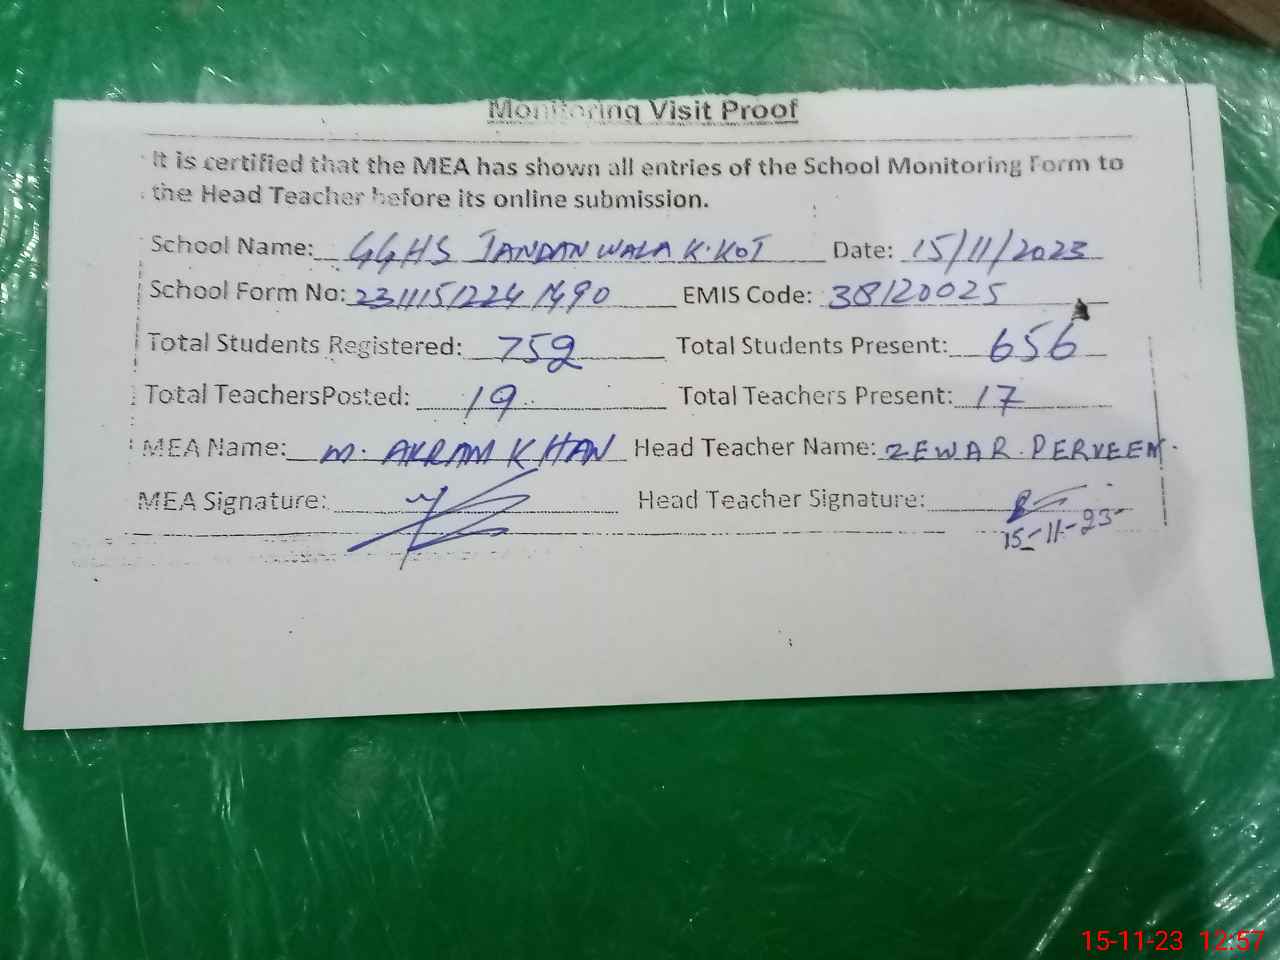 Monitoring Visit Proof
It is certified that the MEA has shown all entries of the School Monitoring Form to
the Head Teacher before its online submission.
School Name: GGHS JANDAN WALA K.KOT Date: 15/11/2023
School Form No: EMIS Code: 38120025
Total Students Registered: 752 Total Students Present: 656
Total TeachersPosted: 19 Total Teachers Present: 17
MEA Name: M. AKRAM KHAN Head Teacher Name: ZEWAR PERVEEN.
MEA Signature: Head Teacher Signature:
15-11-23
15-11-23 12:57